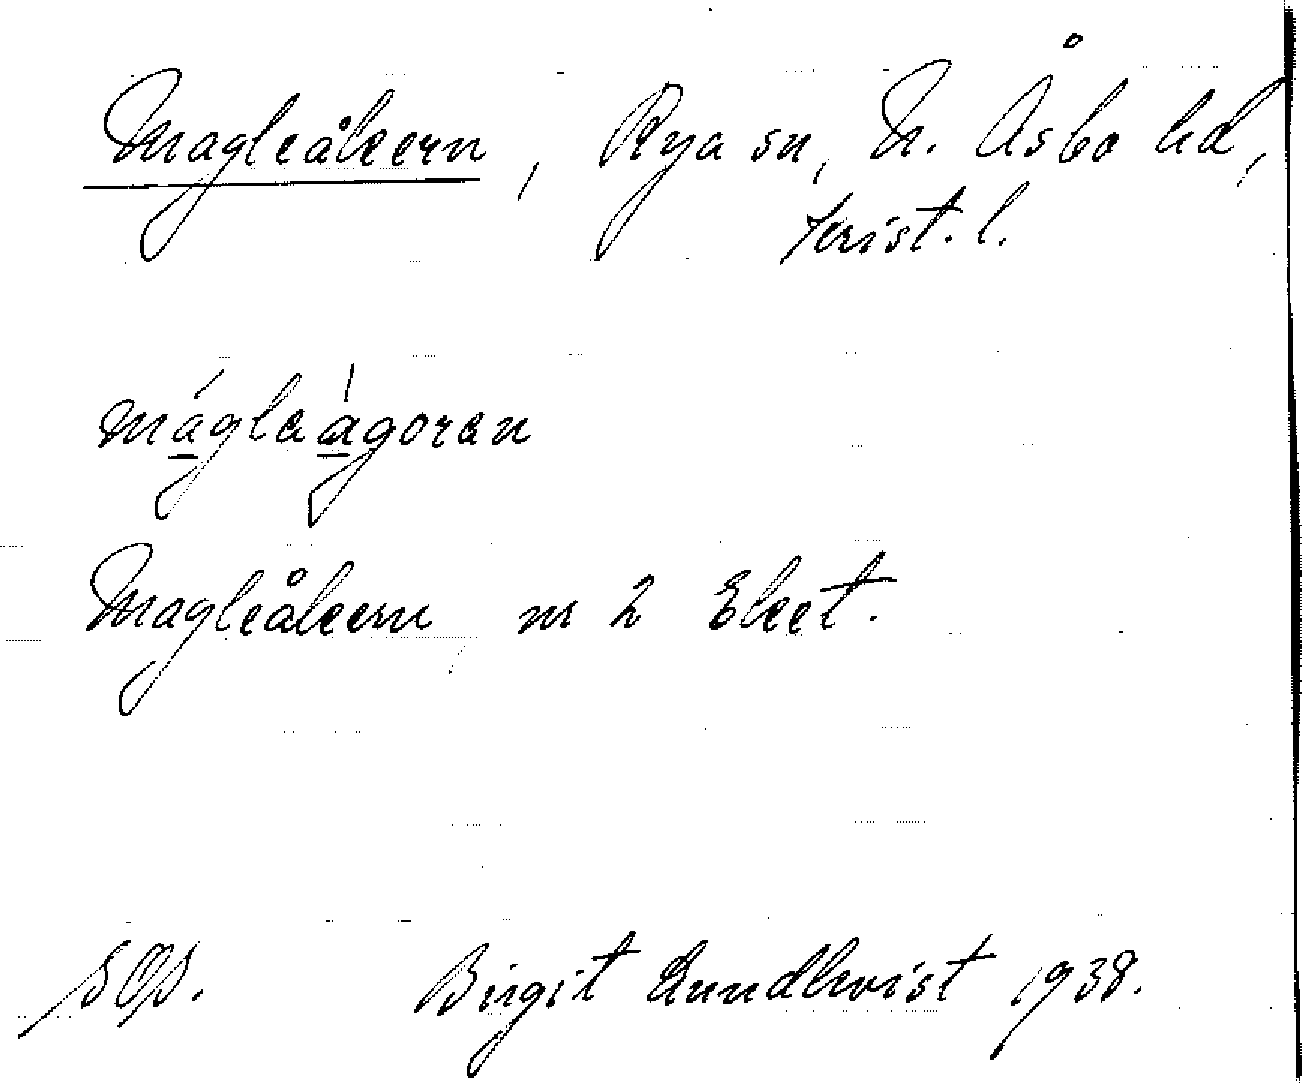 Magleåkern, Rya sn, N. Åsbo hd,
Krist. l.
máglaágoran
Magleåkern nr 2 Eket.
SOS. Birgit Lundkvist 1938.